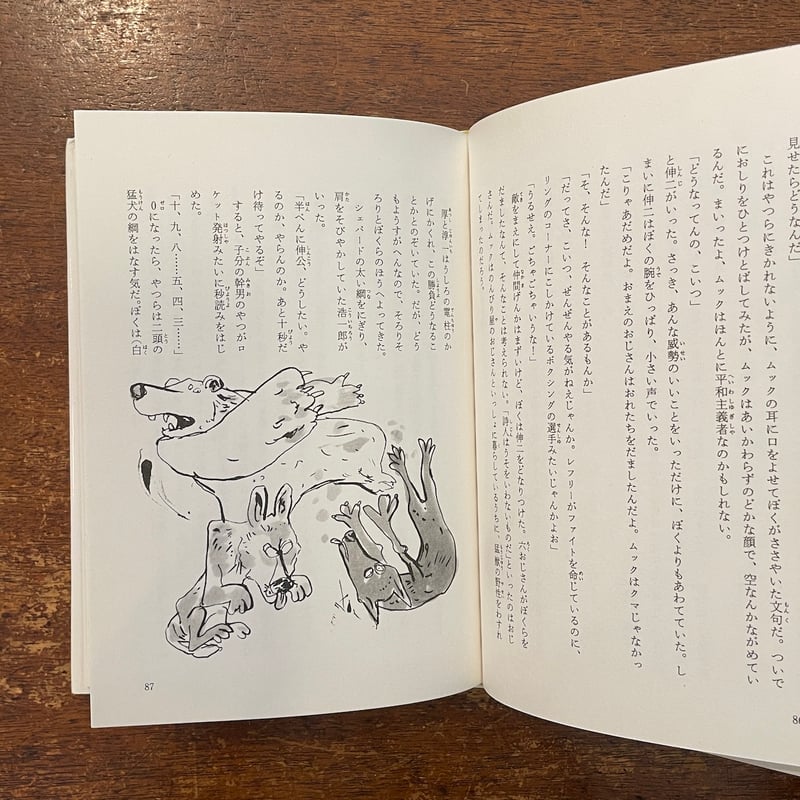 見せたらどうなんだ」
これはやつらにきかれないように、ムックの耳に口をよせてぼくがささやいた文句だ。ついで
におしりをひとつけとばしてみたが、ムックはあいかわらずのどかな顔で、空なんかながめてい
るんだ。まいったよ、ムックはほんとに平和主義者なのかもしれない。
「どうなってんの、こいつ」
と伸二がいった。さっき、あんな威勢のいいことをいっただけに、ぼくよりもあわてていた。し
まいに伸二はぼくの腕をひっぱり、小さい声でいった。
「こりゃあだめだよ。おまえのおじさんはおれたちをだましたんだよ。ムックはクマじゃなかっ
たんだ」
「そ、そんな! そんなことがあるもんか」
「だってさ、こいつ、ぜんぜんやる気がねえじゃんか。レフリーがファイトを命じているのに、
リングのコーナーにこしかけているボクシングの選手みたいじゃんかよお」
「うるせえ。ごちゃごちゃいうな!」
敵をまえにして仲間げんかはまずいけど、ぼくは伸二をどなりつけた。六おじさんがぼくらを
だましたなんて、そんなことは考えられない。「詩人はうそをいわないものだ」といったのはおじ
さんだ。ムックはのんびり屋のおじさんといっしょに暮らしているうちに、猛獣の野性をわすれ
てしまったのだろう。
86
厚と淳一はうしろの電柱のか
げにかくれ、この勝負どうなるこ
とかとのぞいていた。だが、どう
もようすがへんなので、そろりそ
ろりとぼくらのほうへよってきた。
シェパードの太い綱をにぎり、
肩をそびやかしていた浩一郎が
いった。
「半ぺんに伸公、どうしたい。や
るのか、やらんのか。あと十秒だ
け待ってやるぞ」
すると、子分の幹男のやつがロ
ケット発射みたいに秒読みをはじ
めた。
「十、九、八……五、四、三……」
0になったら、やつらは二頭の
猛犬の綱をはなす気だ。ぼくは〈白
87